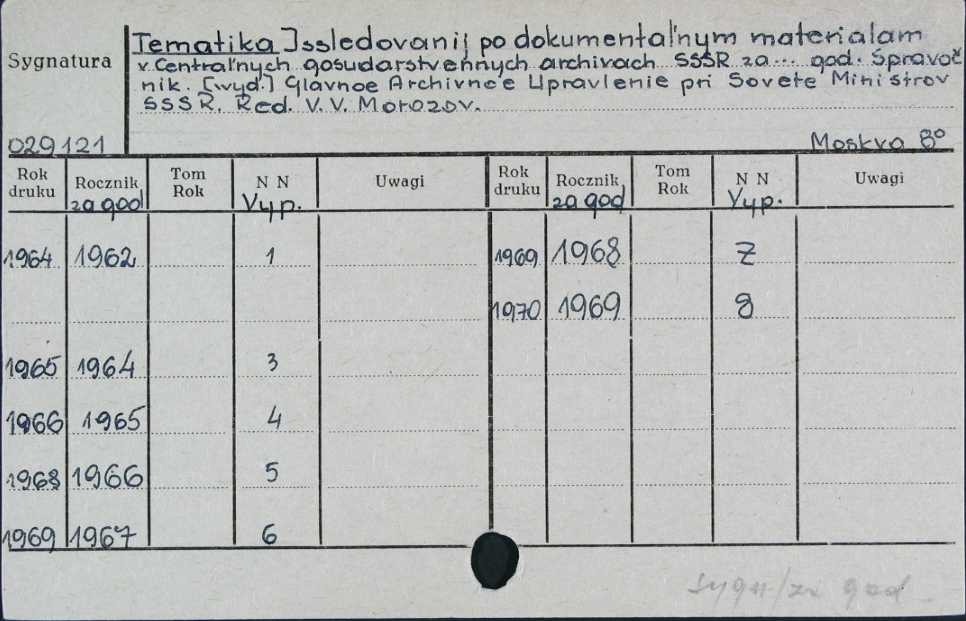 Sygnatura
Tematika Issledovanij po dokumental'nym materialam
v Central'nych gosudarstvennych archivach SSSR za... god. Spravoč
nik. [wyd.] Glavnoe Archivnoe Upravlenie pri Sovete Ministrov
SSSR. Red. V. V. Morozov.
029121 Moskva 8°
Rok druku Rocznik za god Tom Rok N N Vyp. Uwagi Rok druku Rocznik za god Tom Rok N N Vyp. Uwagi
1964 1962 1 1969 1968 7
1970 1969 8
1965 1964 3
1966 1965 4
1968 1966 5
1969 1967 6
sygn/za god